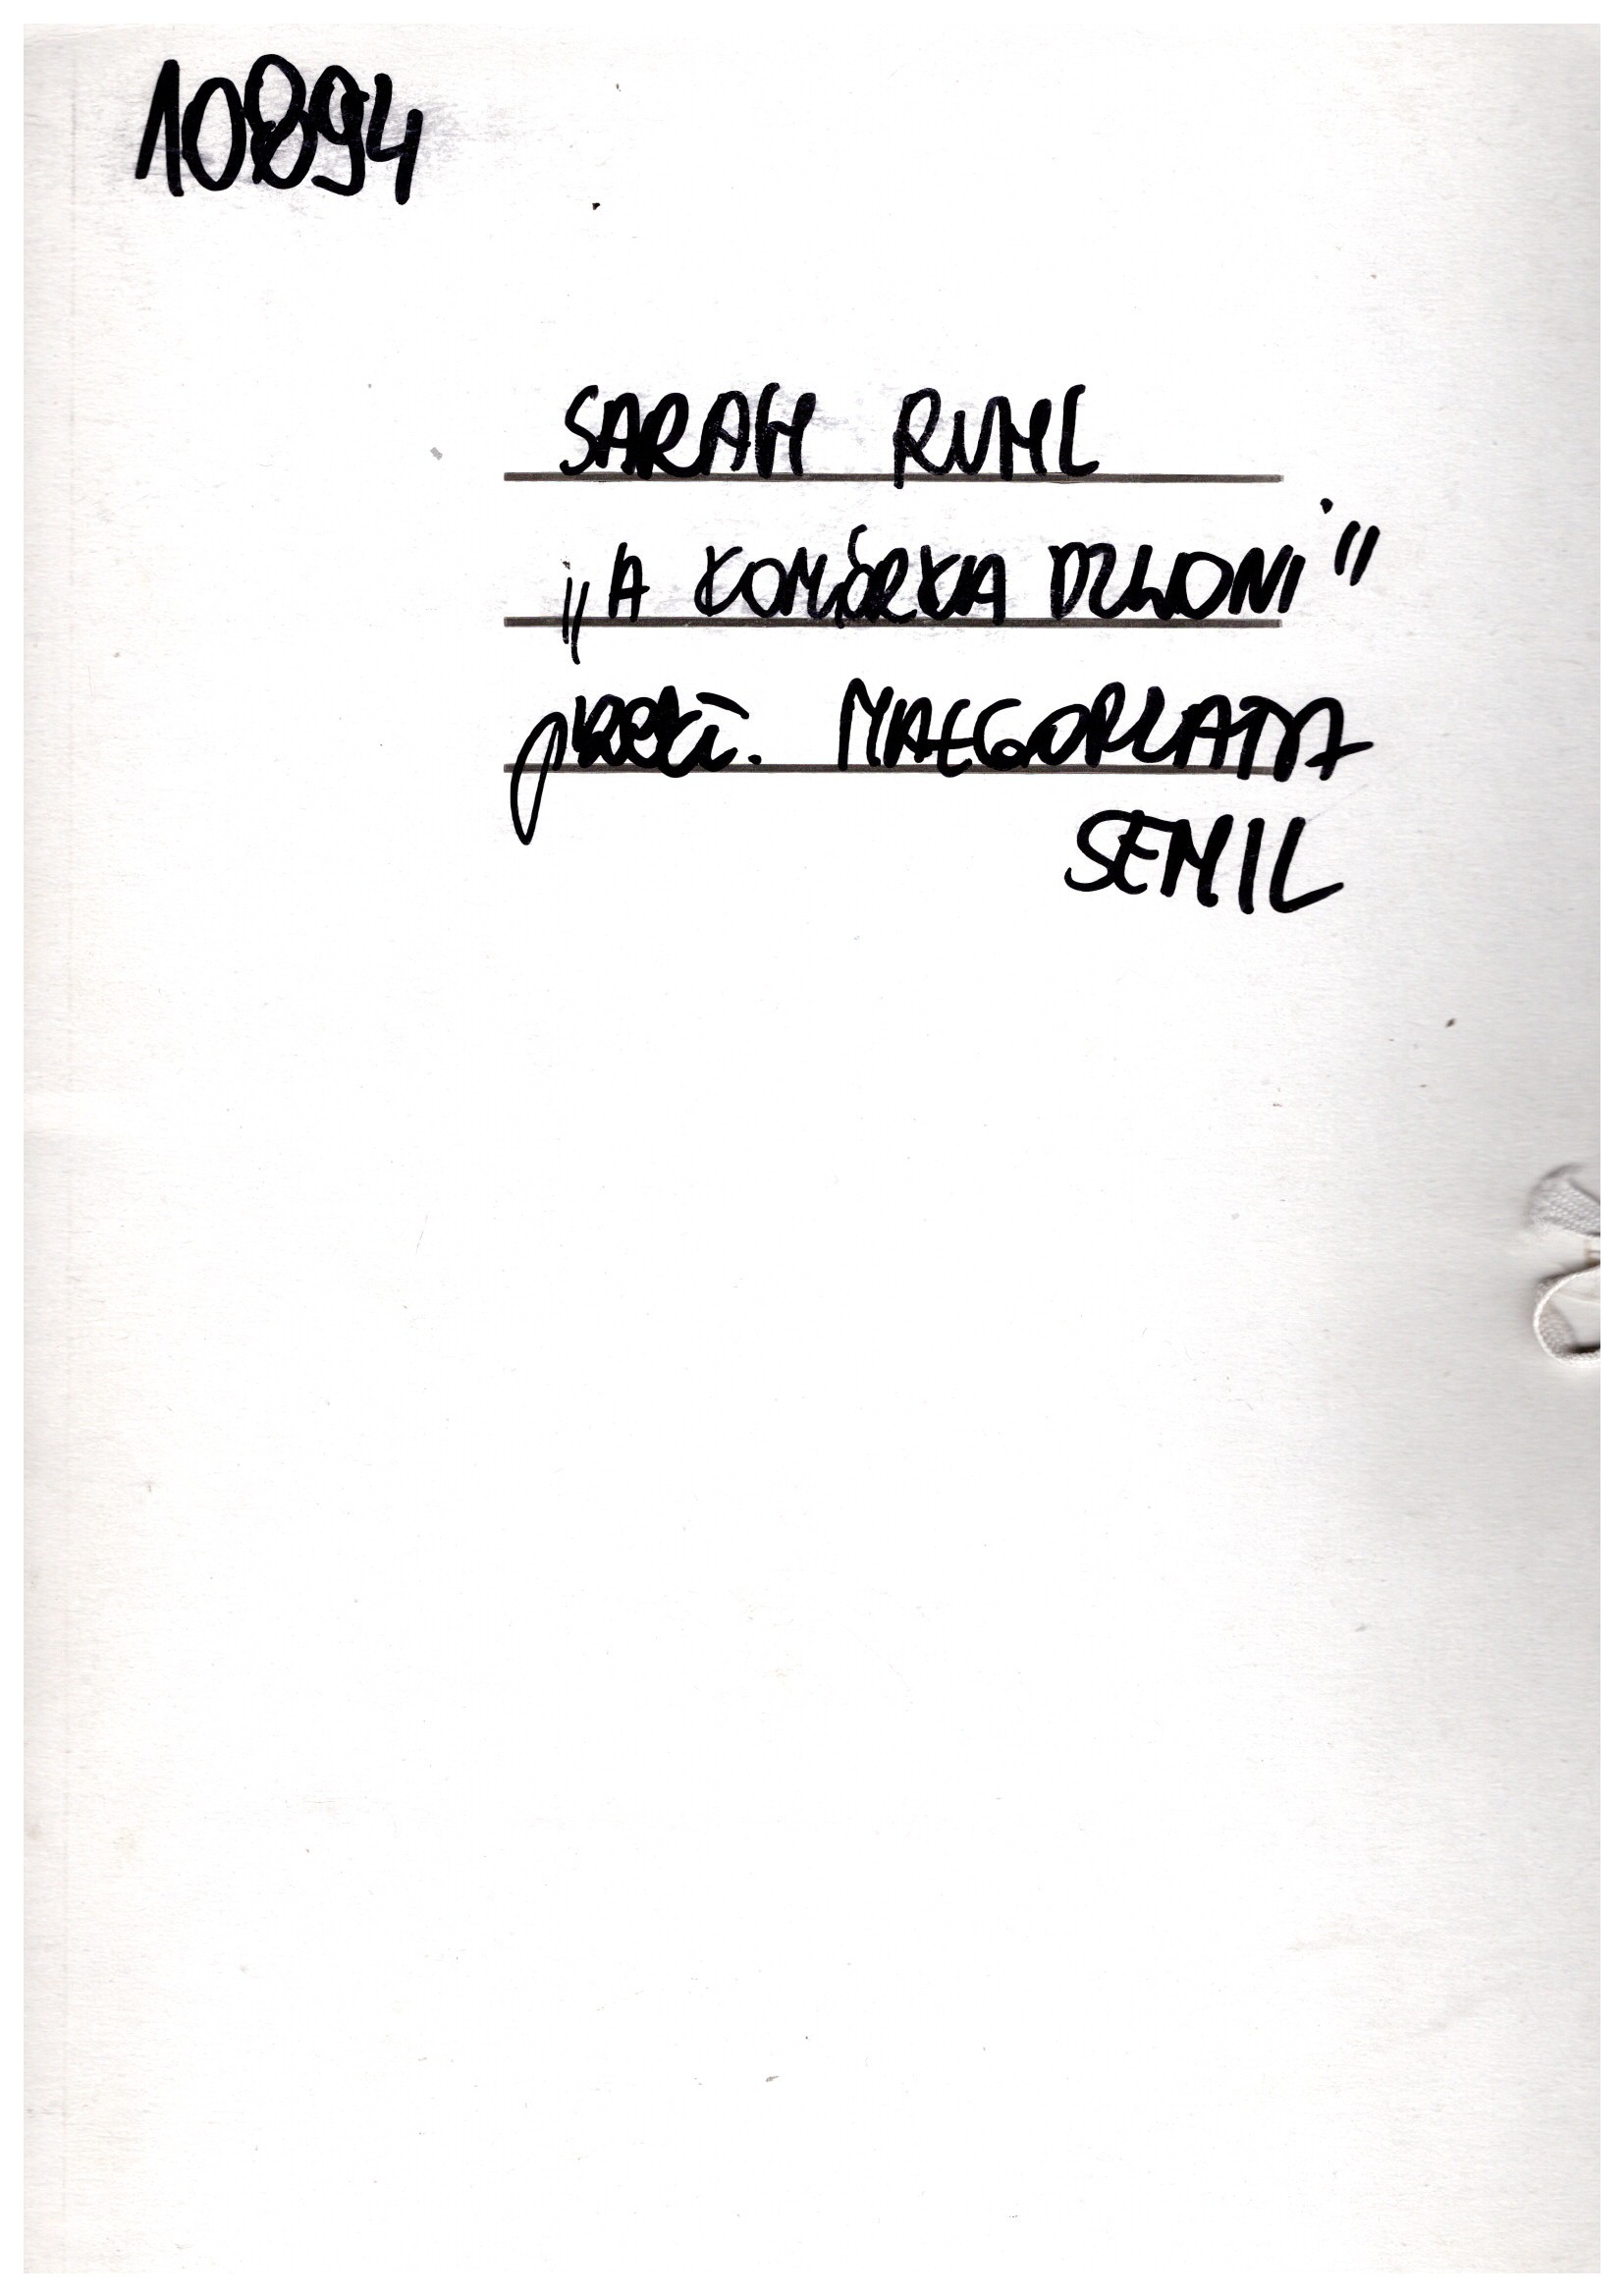 10894
SARAH RUHL
„A KOMÓRKA DZWONI"
przekł. MAŁGORZATA
SEMIL